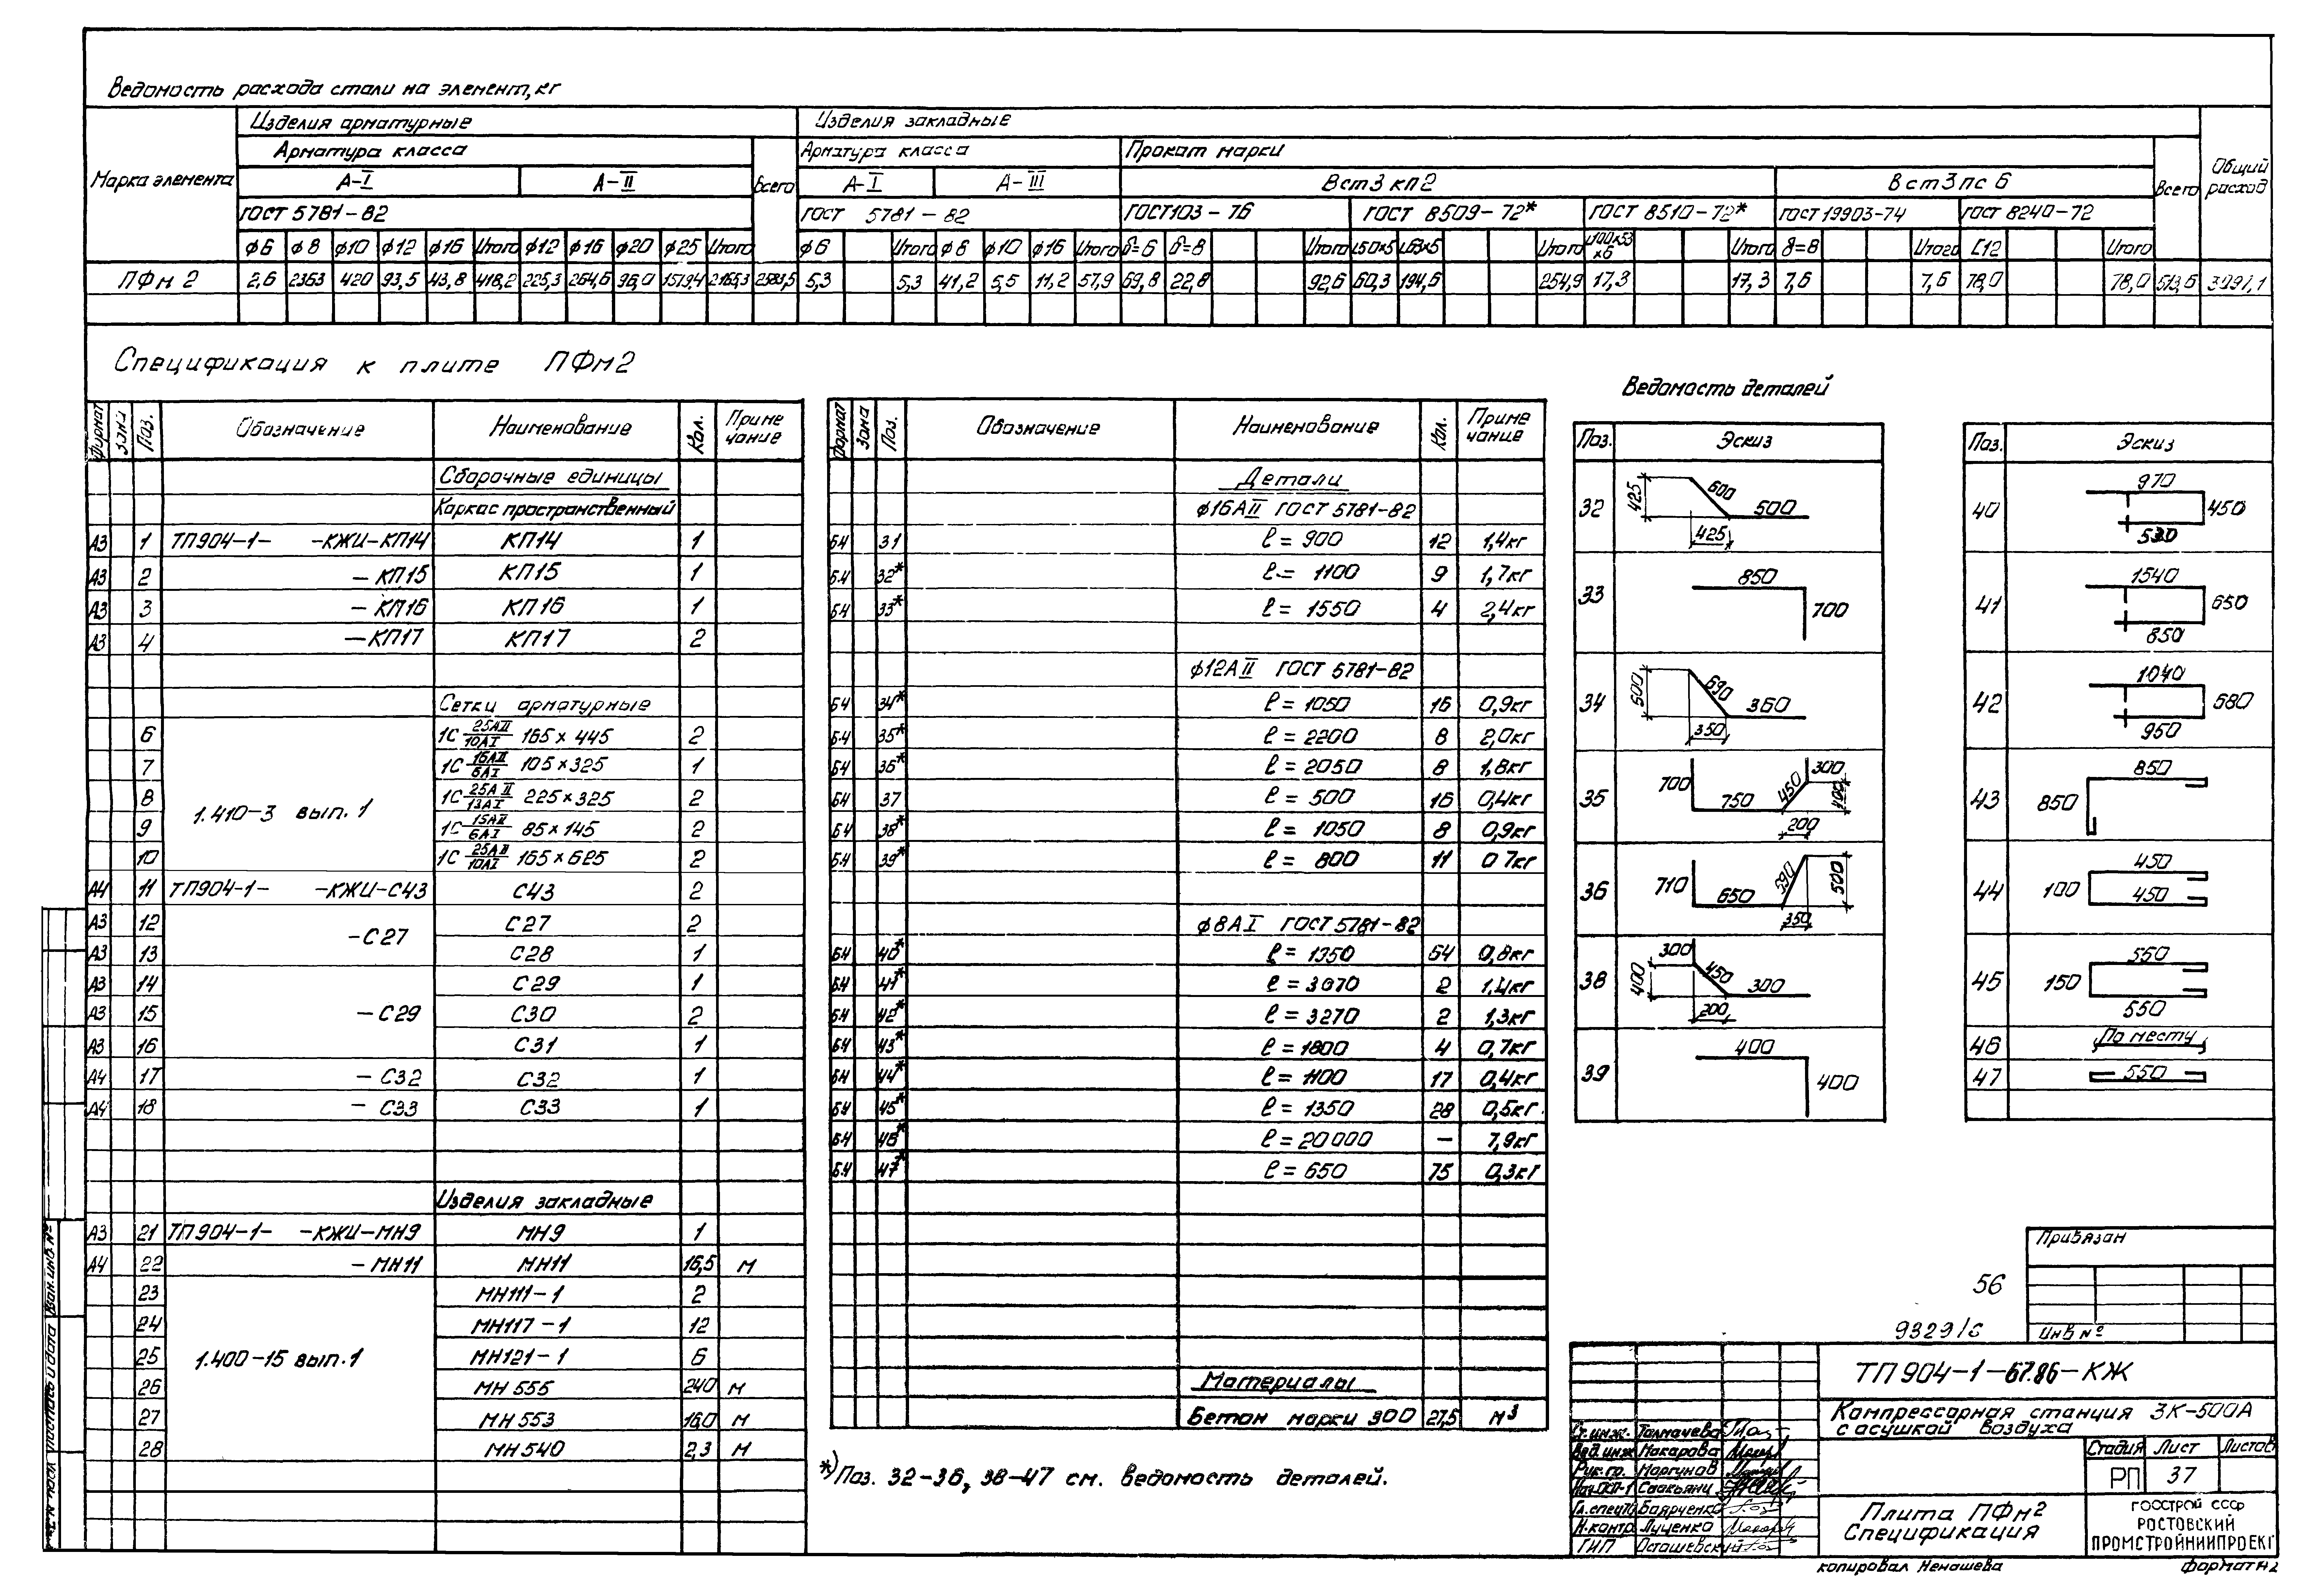 Ведомость расхода стали на элемент, кг
Марка элемента
Изделия арматурные
Изделия закладные
Общий расход
Арматура класса
Всего
Арматура класса
Прокат марки
Всего
А-I
А-II
А-I
А-III
Вст3 кп2
Вст3пс 6
ГОСТ 5781-82
ГОСТ 5781-82
ГОСТ103-76
ГОСТ 8509-72*
ГОСТ 8510-72*
ГОСТ 19903-74
ГОСТ 8240-72
ф6 ф8 ф10 ф12 ф16 Итого ф12 ф16 ф20 ф25 Итого ф6 Итого ф8 ф10 ф16 Итого δ=6 δ=8 Итого L50x5 L63x5 Итого L100x63x6 Итого δ=8 Итого [12 Итого
ПФм 2 2,6 93,5 43,8 418,2 225,3 264,6 96,0 1579,4 2165,3 2583,5 5,3 5,3 41,2 5,5 11,2 57,9 69,8 22,8 92,6 60,3 194,6 254,9 17,3 17,3 7,6 7,6 78,0 78,0 513,6
Спецификация к плите ПФм2
Формат Зона Поз. Обозначение Наименование Кол. Примечание
Сборочные единицы
Каркас пространственный
А3 1 ТП904-1- -КЖИ-КП14 КП14 1
А3 2 -КП15 КП15 1
А3 3 -КП16 КП16 1
А3 4 -КП17 КП17 2
Сетки арматурные
6 1С 25АII/10АI 165×445 2
7 1С 16АII/6АI 105×325 1
8 225×325 2
1.410-3 вып. 1
9 85×145 2
10 1С 25АII/10АI 165×625 2
А4 11 ТП904-1- -КЖИ-С43 С43 2
А3 12 -С27 С27 2
А3 13 С28 1
А3 14 С29 1
А3 15 -С29 С30 2
А3 16 С31 1
А4 17 -С32 С32 1
А4 18 -С33 С33 1
Изделия закладные
А3 21 ТП904-1- -КЖИ-МН9 МН9 1
А4 22 -МН11 МН11 16,5 м
23 МН111-1 2
24 МН117-1 12
25 1.400-15 вып.1 МН121-1 6
26 МН 555 м
27 МН 553 м
28 МН 540 2,3 м
Формат Зона Поз. Обозначение Наименование Кол. Примечание
Детали
ф16АII ГОСТ 5781-82
Б4 31 ℓ = 900 12 1,4кг
Б4 32* ℓ = 1100 9 1,7кг
Б4 33* ℓ = 1550 4 2,4кг
ф12АII ГОСТ 5781-82
Б4 34* ℓ = 1050 16 0,9кг
Б4 35* ℓ = 2200 8 2,0кг
Б4 36* ℓ = 2050 8 1,8кг
Б4 37 ℓ = 500 16 0,4кг
Б4 38* ℓ = 1050 8 0,9кг
Б4 39* ℓ = 800 11 0 7кг
ф8АI ГОСТ 5781-82
Б4 40* ℓ = 1350 0,8кг
Б4 41* ℓ = 3670 2 1,4кг
Б4 42* ℓ = 3270 2 1,3кг
Б4 43* ℓ = 1800 4 0,7кг
Б4 44* ℓ = 1100 17 0,4кг
Б4 45* ℓ = 1350 28 0,5кг.
Б4 46* ℓ = 20000 – 7,9кг
Б4 47* ℓ = 650 75 0,3кг
Материалы
Бетон марки 300 27,5 м³
*) Поз. 32-36, 38-47 см. ведомость деталей.
Ведомость деталей
Поз. Эскиз
32 425 600 500 425
33 850 700
34 500 690 360 350
35 700 750 450 300 400 200
36 710 650 590 500 350
38 300 400 450 300 200
39 400 400
Поз. Эскиз
40 970 450
41 1540 650 850
42 1040 680 950
43 850 850
44 450 100 450
45 550 150 550
46 По месту
47 550
56
9329/6
Привязан
Инв №
ТП 904-1-67.86-КЖ
Компрессорная станция 3К-500А
с осушкой воздуха
Стадия Лист Листов
РП 37
Плита ПФм2
Спецификация
ГОССТРОЙ СССР
РОСТОВСКИЙ
ПРОМСТРОЙНИИПРОЕКТ
Ст.инж. Толмачева
Вед.инж Макарова
Рук.гр. Моргунов
Саакьянц
Гл.спец Боярченко
Н.контр Луценко
ГИП Осташевский
копировал Ненашева
формат А2
Взам.инв.№
Подпись и дата